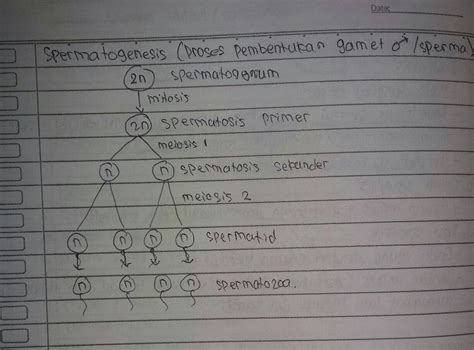 Date:
Spermatogenesis (proses pembentukan gamet ♂/sperma)
2n spermatogonium
mitosis
2n spermatosis primer
meiosis 1
n n spermatosis sekunder
meiosis 2
n n n n spermatid
n n n n spermatozoa.